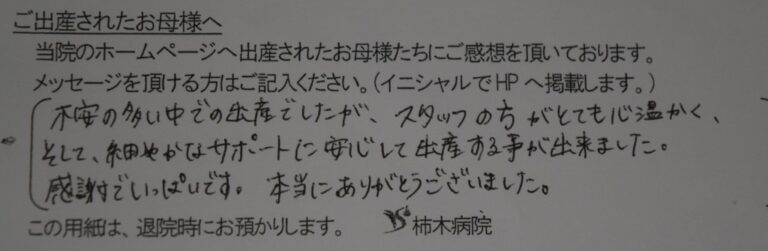 ご出産されたお母様へ
当院のホームページへ出産されたお母様たちにご感想を頂いております。
メッセージを頂ける方はご記入ください。(イニシャルでHPへ掲載します。)
不安の多い中での出産でしたが、スタッフの方がとても心温かく、
そして、細やかなサポートに安心して出産する事が出来ました。
感謝でいっぱいです。本当にありがとうございました。
この用紙は、退院時にお預かりします。 柿木病院